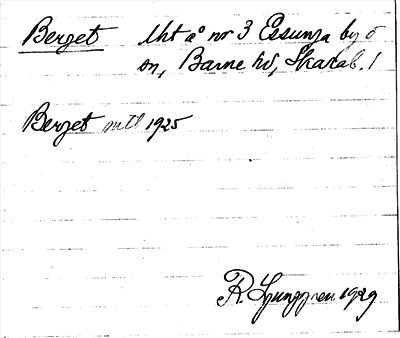 Berget Uht å nr 3 Essunga by o
sn, Barne hd, Skarab. l
Berget mtl 1925
R. Ljunggren 1929